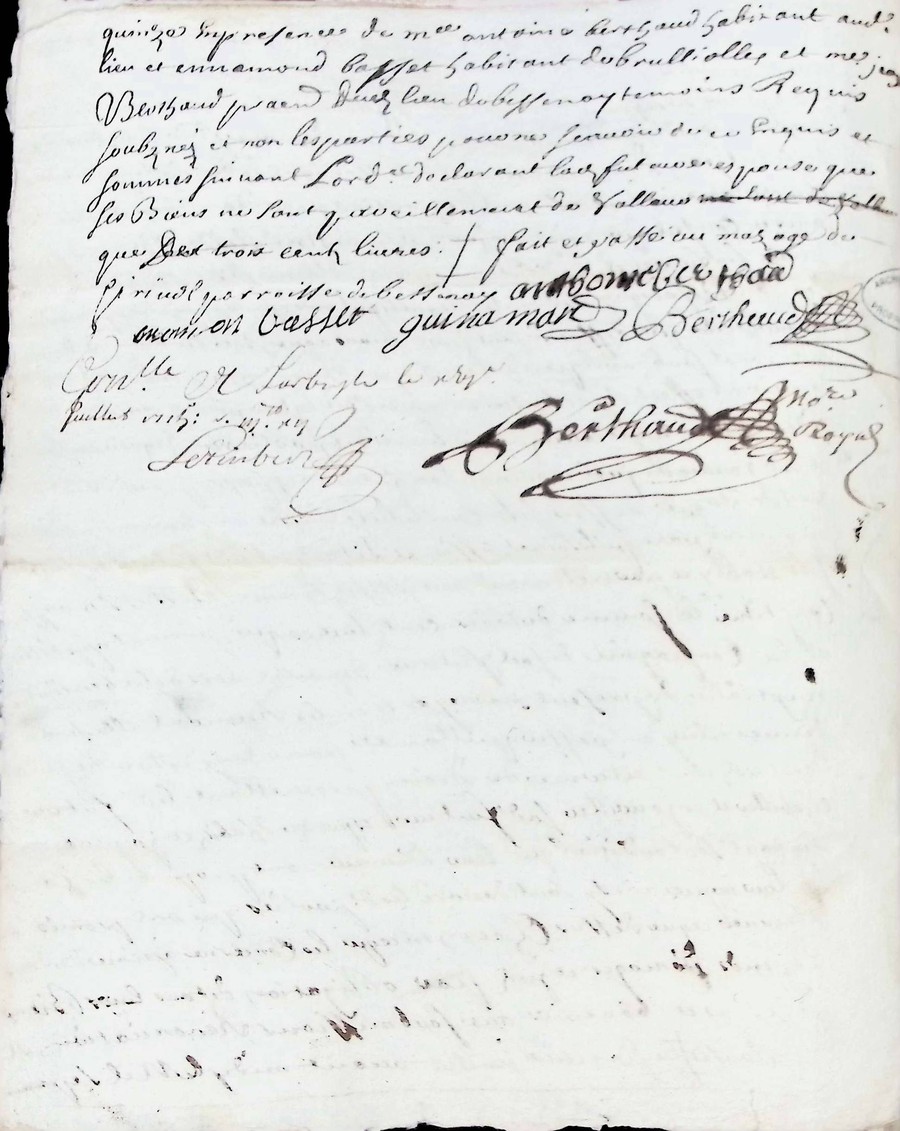 quinze En presence de mre antoine berthaud habitant aud.
lieu et ennamond basset habitant de brullioles et me
Berthaud praend dud. lieu de bessenay temoins Requis
soubznés et non les parties pour ne scavoir de ce Enquis et
sommés suivant L'ord.ce declarant lad. future espouse que
ses Biens ne sont qu'veillement de Valleur
que Des trois cent livres. fait et passé au de
parroisse de bessenay anthoine berthaud
anamon basset guinaman Berthaud
Con.lle A Larbresle le
juillet
Berthaud No.re
Royal